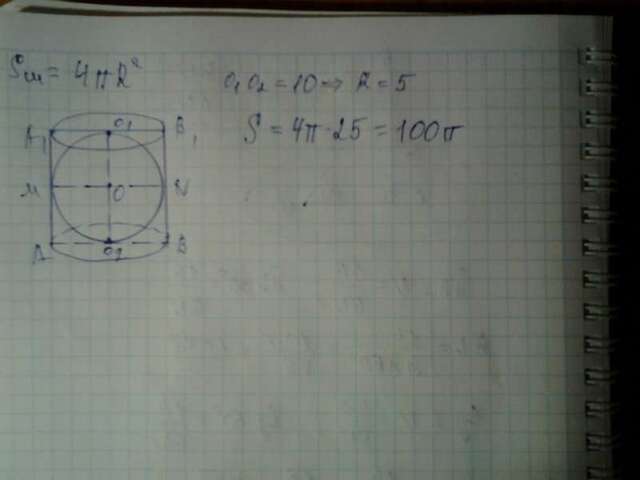 Sш = 4πR²
O₁O₂ = 10 ⇒ R = 5
S = 4π·25 = 100π
A₁ O₁ B₁
M O N
A O₂ B